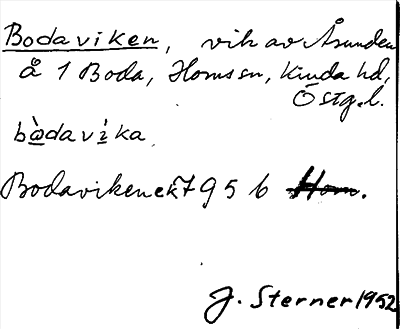 Bodaviken, vik av Åsunden
å 1 Boda, Horns sn, Kinda hd,
Östg. l.
bådavika
Bodaviken ek 7956 Horn.
J. Sterner 1952